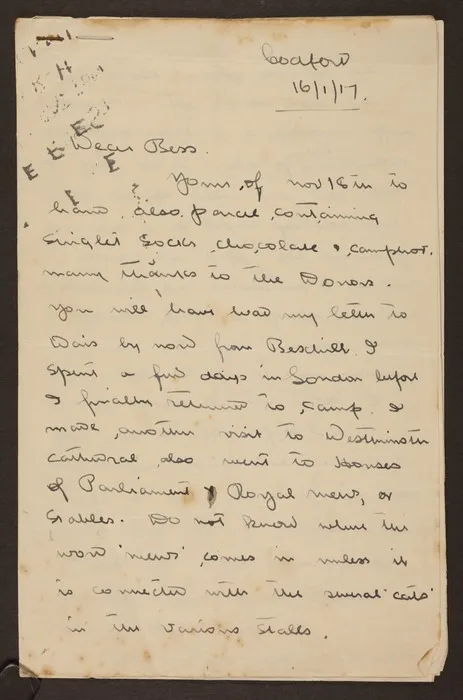 Codford
16/1/17.
Dear Bess.
Yours of Nov 18th to
hand, also parcel, containing
singlet socks, chocolate & camphor.
many thanks to the Donors.
You will have had my letter to
Dais by now from Bexhill. I
spent a few days in London before
I finally returned to camp. I
made another visit to Westminster
cathedral also went to Houses
of Parliament & Royal mews, or
stables. Do not know where the
word 'mews' comes in unless it
is connected with the several 'cats'
in the various stalls.